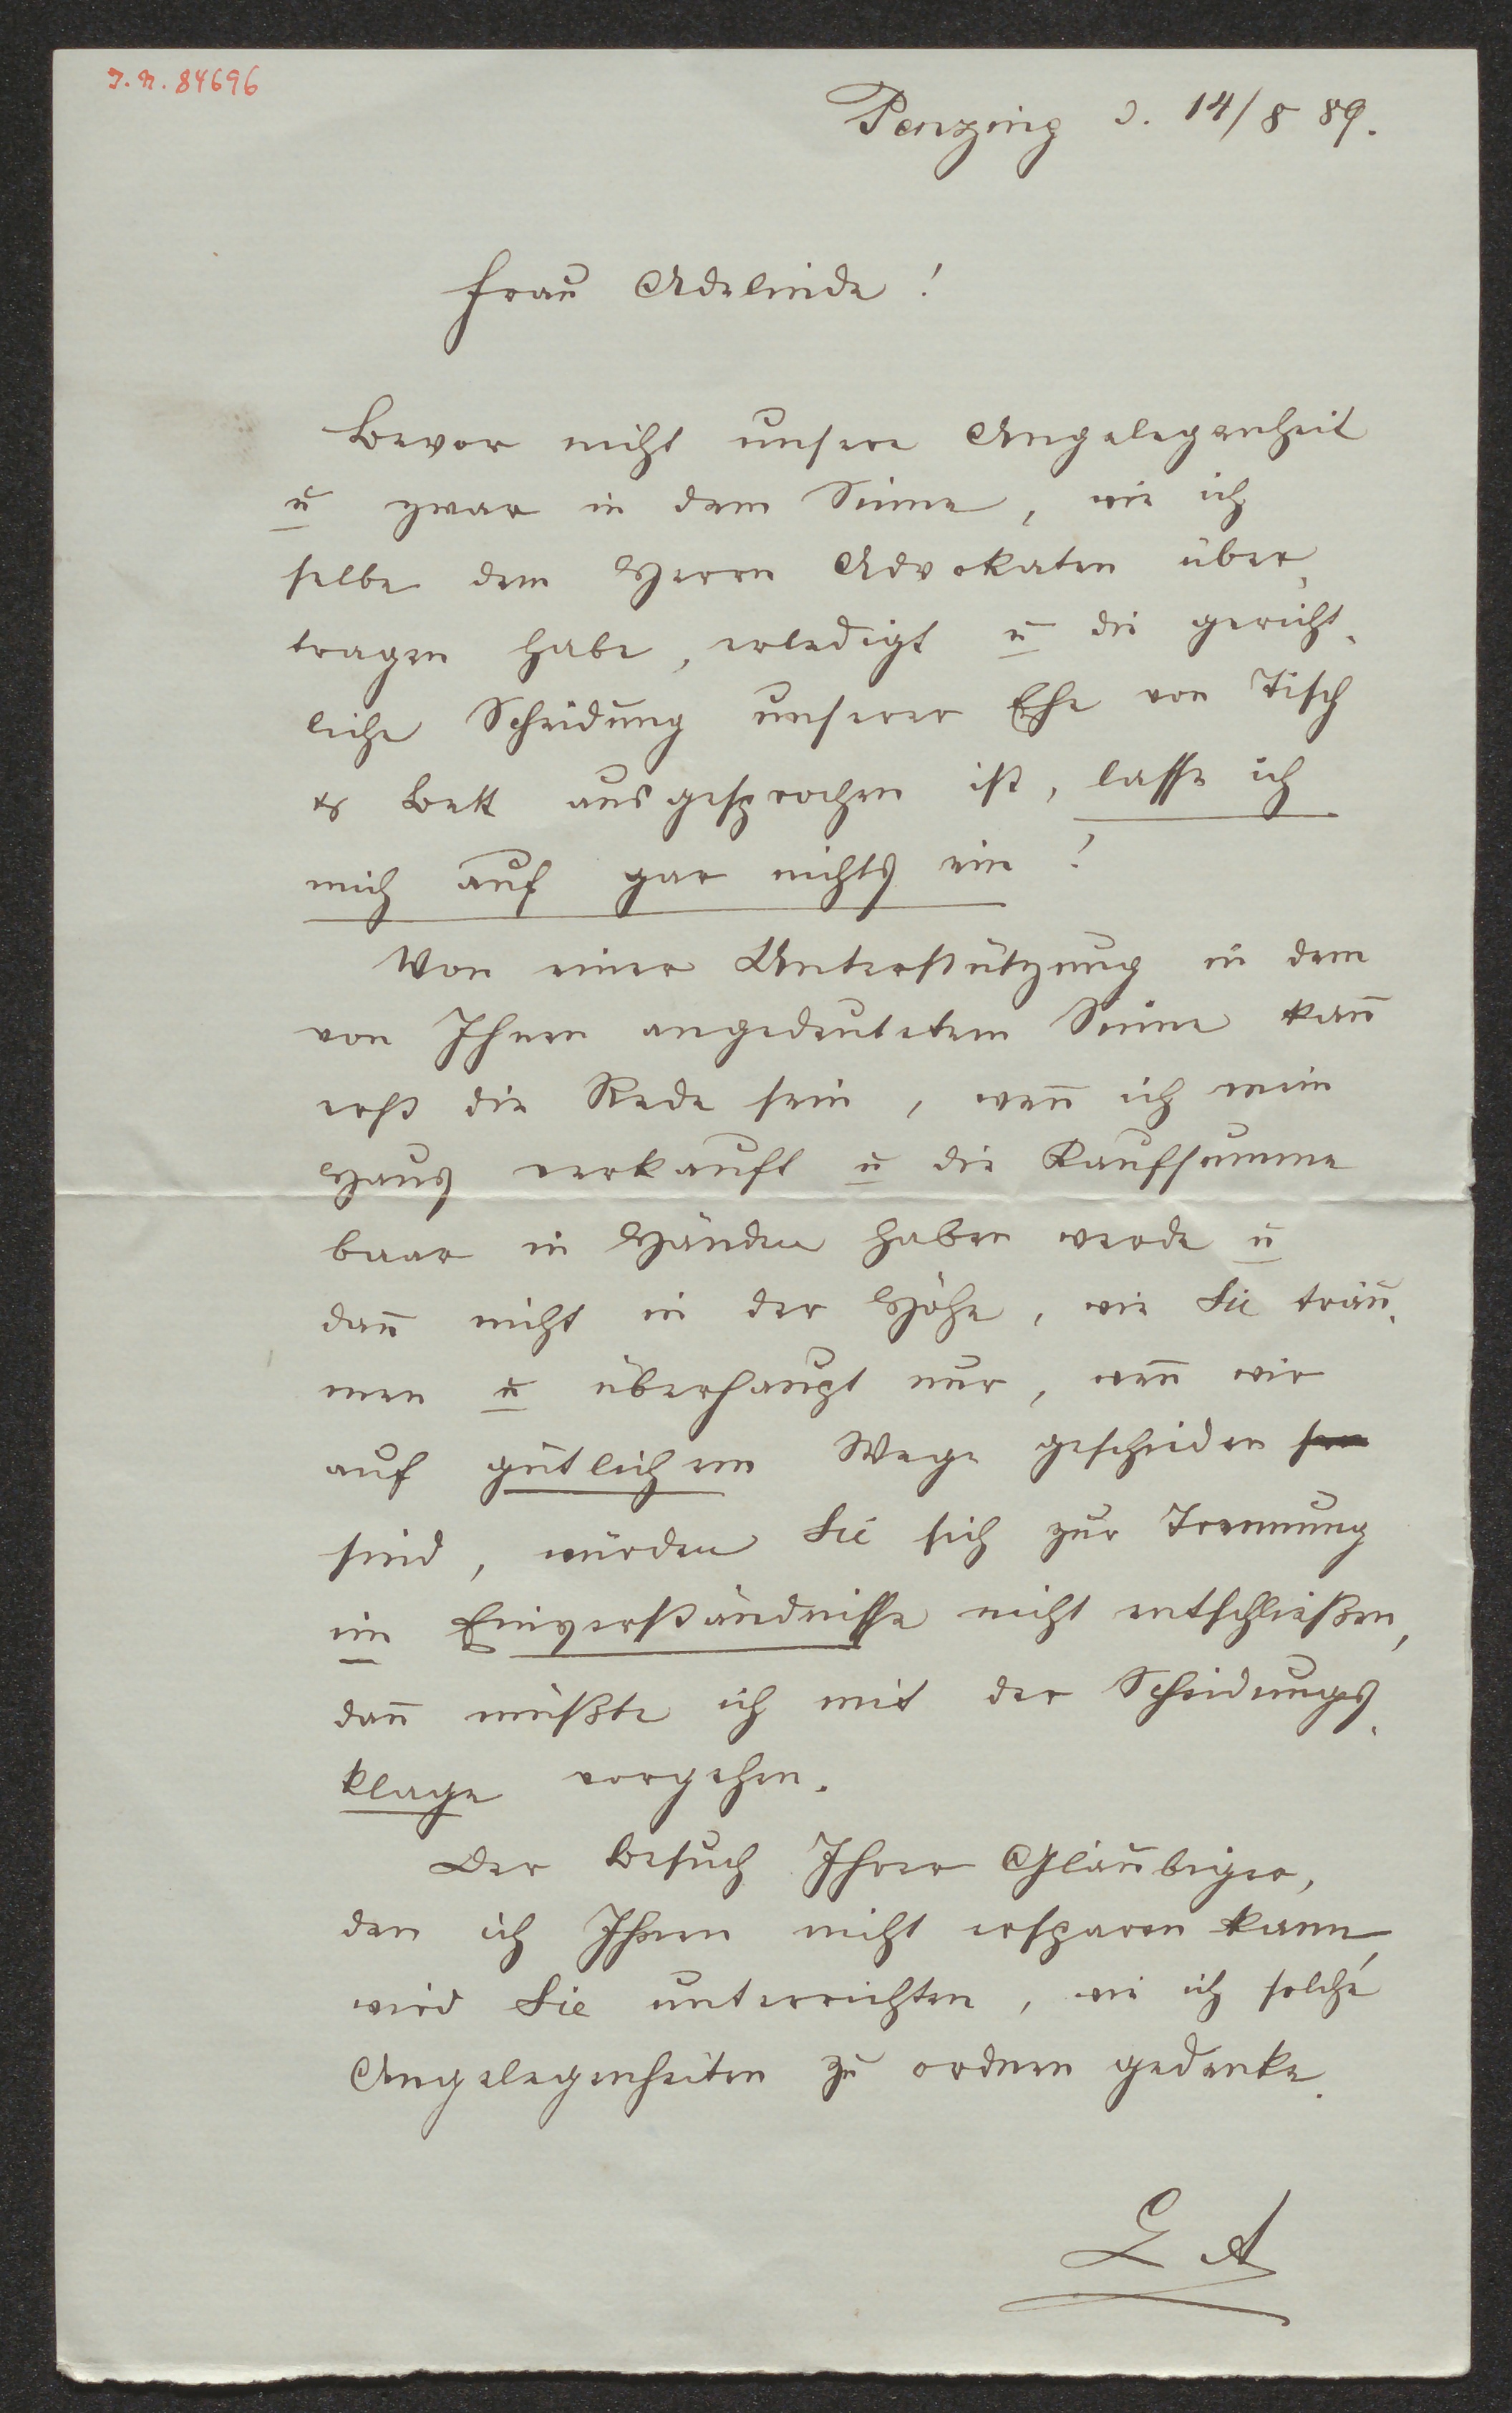 I. N. 84696
Penzing d. 14/8 89.
Frau Adelinde!
Bevor nicht unsere Angelegenheit
u zwar in dem Sinne, wie ich
selbe dem Herrn Advokaten über,
tragen habe, erledigt u die gericht,
liche Scheidung unserer Ehe von Tisch
& Bett ausgesprochen ist, lasse ich
mich auf gar nichts ein!
Von einer Unterstützung in dem
von Ihnen angedeutetem Sinne kan̄
erst die Rede sein, wen̄ ich mein
Haus verkauft u die Kaufsumme
baar in Händen haben werde u
dan̄ nicht in der Höhe, wie Sie träu,
men u überhaupt nur, wen̄ wir
auf gütlichem Wege geschieden
sind, würden Sie sich zur Trennung
im Einverständnisse nicht entschließen,
dan̄ müßte ich mit der Scheidungs,
klage vorgehen.
Der Besuch Ihrer Gläubiger,
den ich Ihnen nicht ersparen kann,
wird Sie unterrichten, wie ich solche
Angelegenheiten zu ordnen gedenke.
L A